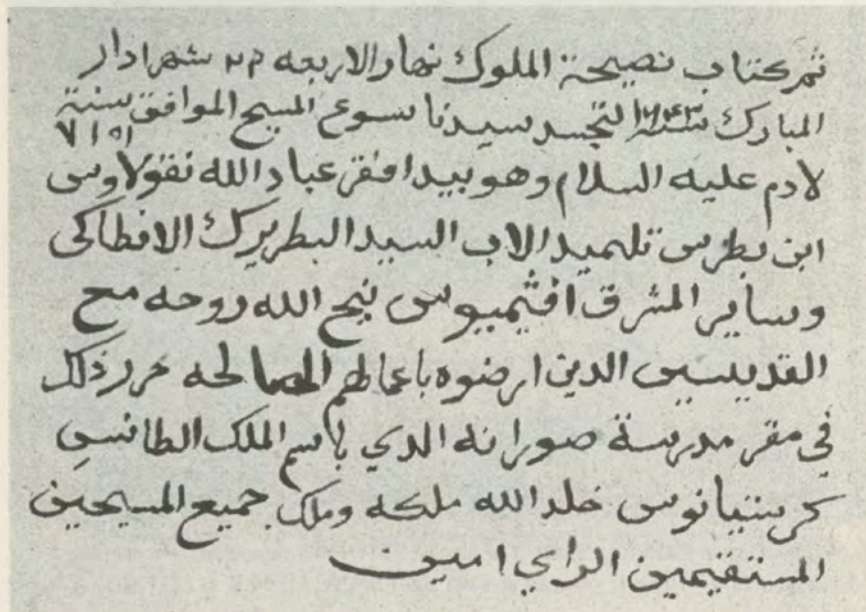 تم كتاب نصيحة الملوك نهار الاربعه ٢٢ شهر ادار
المبارك سنة ١٦٤٣ لتجسد سيدنا يسوع المسيح الموافق سنة ٧١٥١
لادم عليه السلام وهو بيد افقر عباد الله نقولاوس
ابن بطرس تلميد الاب السيد البطريرك الانطاكي
وساير المشرق افثيميوس نيح الله روحه مع
القديسين الدين ارضوه باعمالهم الصالحه حرر ذلك
في مقر مدرسة صورانه الدي باسم الملك الطانسي
كرستيانوس خلد الله ملكه وملك جميع المسيحين
المستقيمين الراي امين